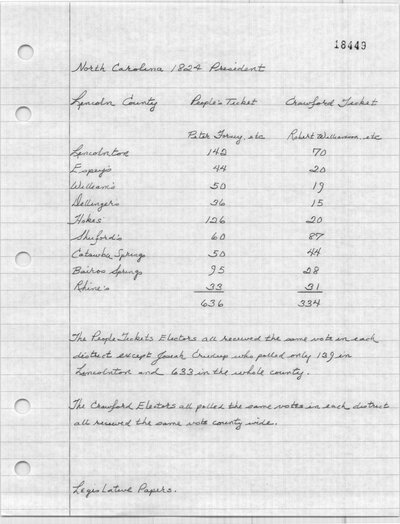 18449
North Carolina 1824 President
Lincoln County People's Ticket Crawford Ticket
Peter Forney, etc Robert Williamson, etc
Lincolnton 142 70
Espey's 44 20
William's 50 19
Dellingers 36 15
Hokes 126 20
Shuford's 60 87
Catawba Springs 50 44
Bairds Springs 95 28
Rhine's 33 31
636 334
The People Tickets Electors all received the same vote in each
district except Josiah Crudup who polled only 139 in
Lincolnton and 633 in the whole county.
The Crawford Electors all polled the same votes in each district
all received the same vote county wide.
Legislative Papers.